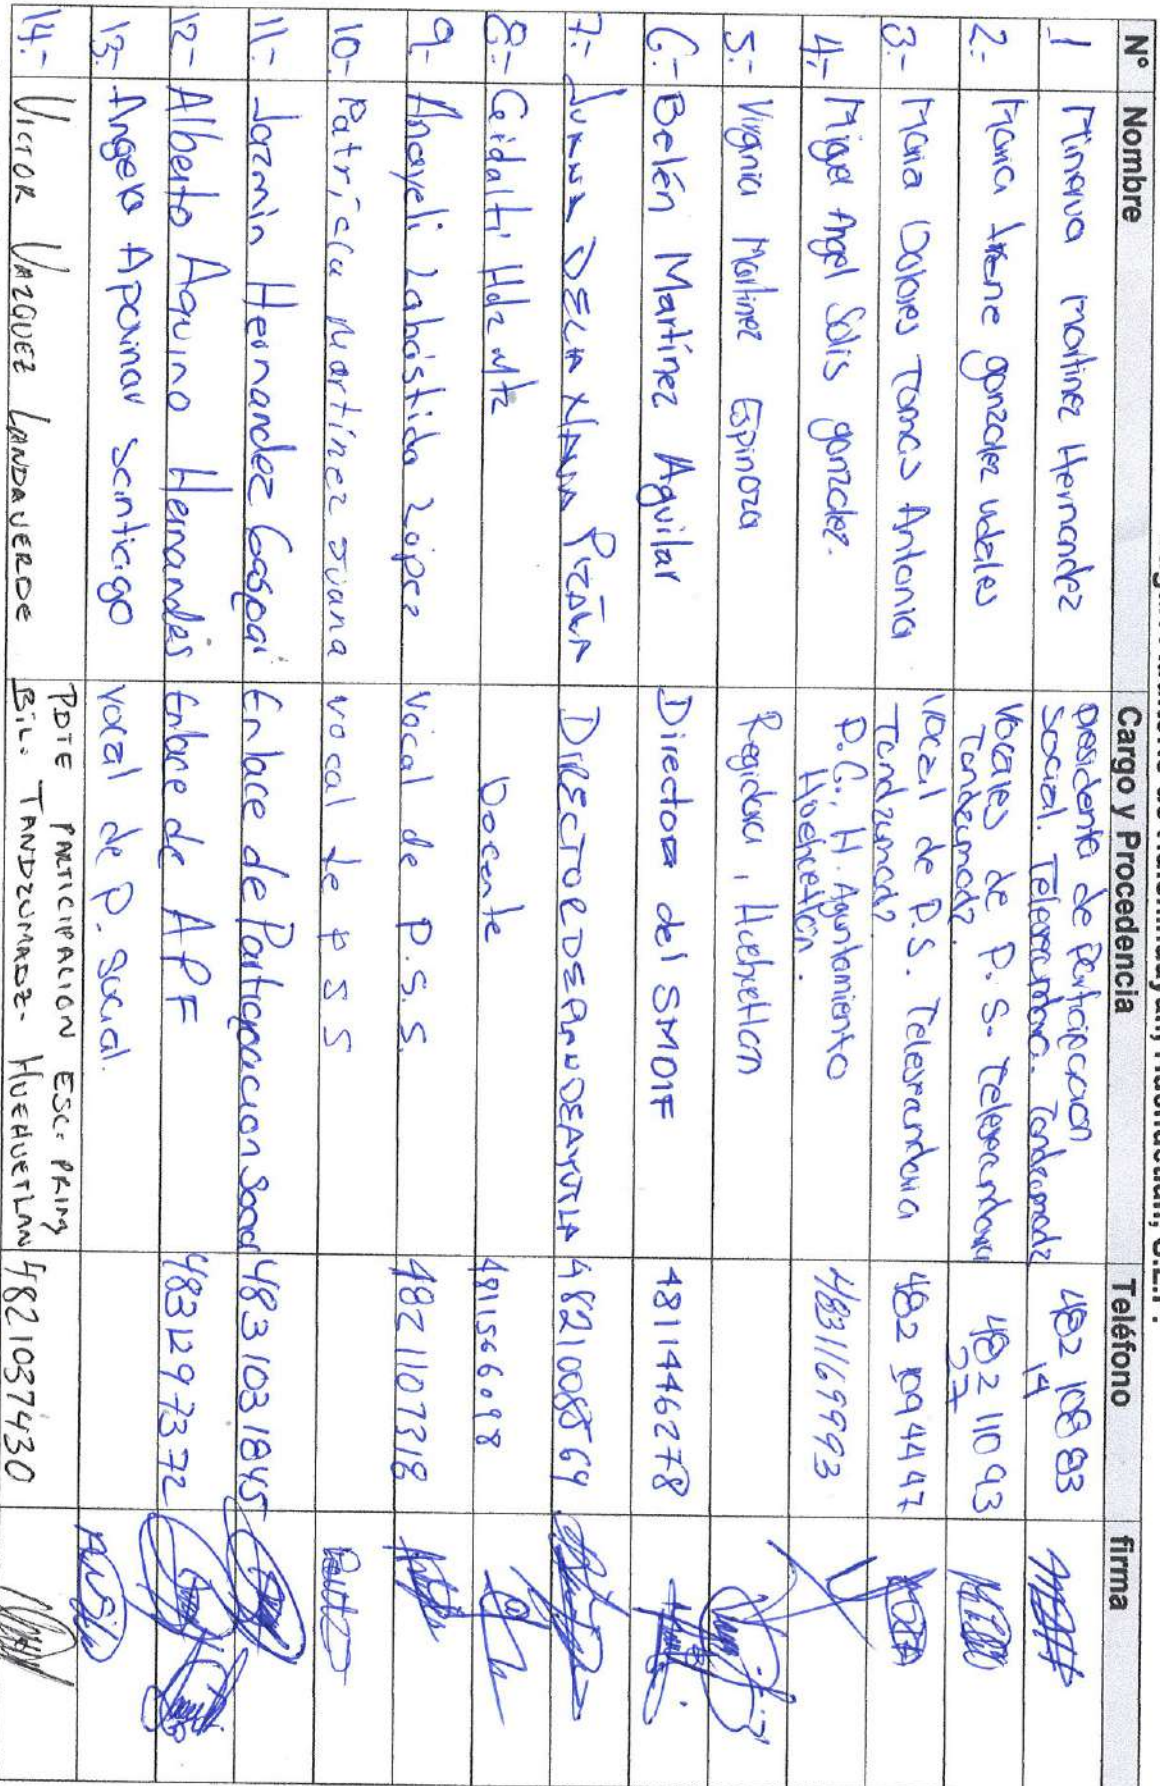 Huehuetlán, S.L.P.
N° Nombre Cargo y Procedencia Teléfono firma
1 Minerva Martinez Hernandez presidenta de Participacion
social. Telesecundaria. Tandzumadz 482 108 83
14
2.- Maria Irene gonzalez Vocales de P. S. telesecundaria
Tandzumadz. 482 110 93
27
3.- Maria Dolores Tomas Antonia Vocal de P.S. Telesecundaria
Tandzumadz 482 109 44 47
4.- Miguel Angel Solis gonzalez. P.C., H. Ayuntamiento
Huehuetlan. 4831169993
5.- Virginia Martinez Espinoza Regidora, Huehuetlan
6.- Belén Martínez Aguilar Directora del SMDIF 4811446278
7.- JUANA DELIA DIRECTOR DE PLAN DE AYUTLA 4821008569
8.- Gidalti Hdz Mtz Docente 4811566098
9.- Anayeli Labastida Lopez Vocal de P.S.S. 4821107318
10.- Patricia Martínez Juana vocal de P S S
11.- Jazmin Hernandez Gaspar Enlace de Participacion Social 4831031845
12- Alberto Aquino Hernandes Enlace de APF 4831297372
13.- Angela Apolinar Santiago vocal de P. Social.
14.- VICTOR VAZQUEZ LANDAVERDE PDTE PARTICIPACION ESC. PRIM
BIL. TANDZUMADZ- HUEHUETLAN 4821037430